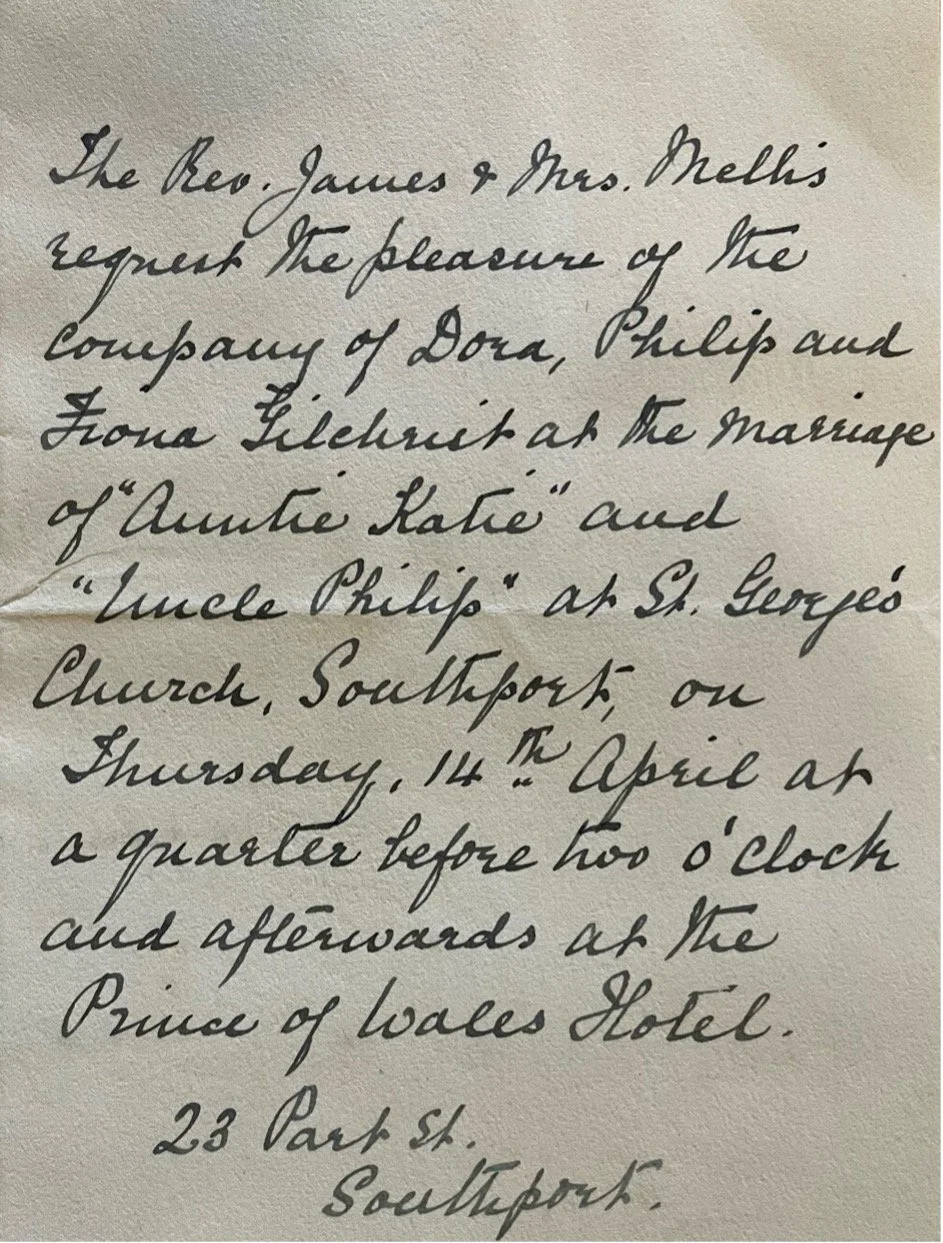 The Rev. James & Mrs. Mellis
request the pleasure of the
company of Dora, Philip and
Fiona Gilchrist at the marriage
of "Auntie Katie" and
"Uncle Philip" at St. George's
Church, Southport, on
Thursday, 14th April at
a quarter before two o'clock
and afterwards at the
Prince of Wales Hotel.
23 Part St.
Southport.